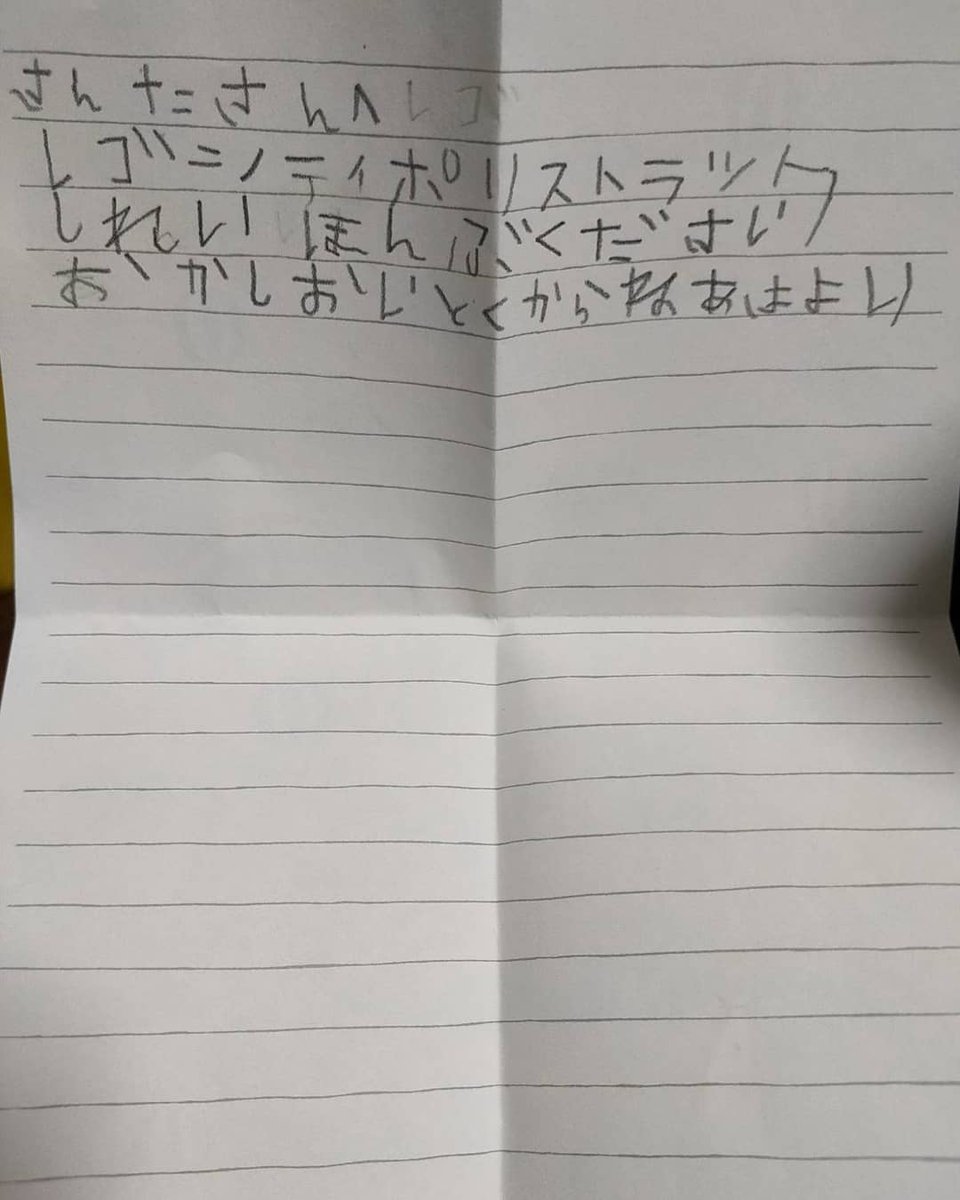 さんたさんへ レゴ
レゴシティポリストラット
しれい ほんぶください
おかしおいとくからねあはよし